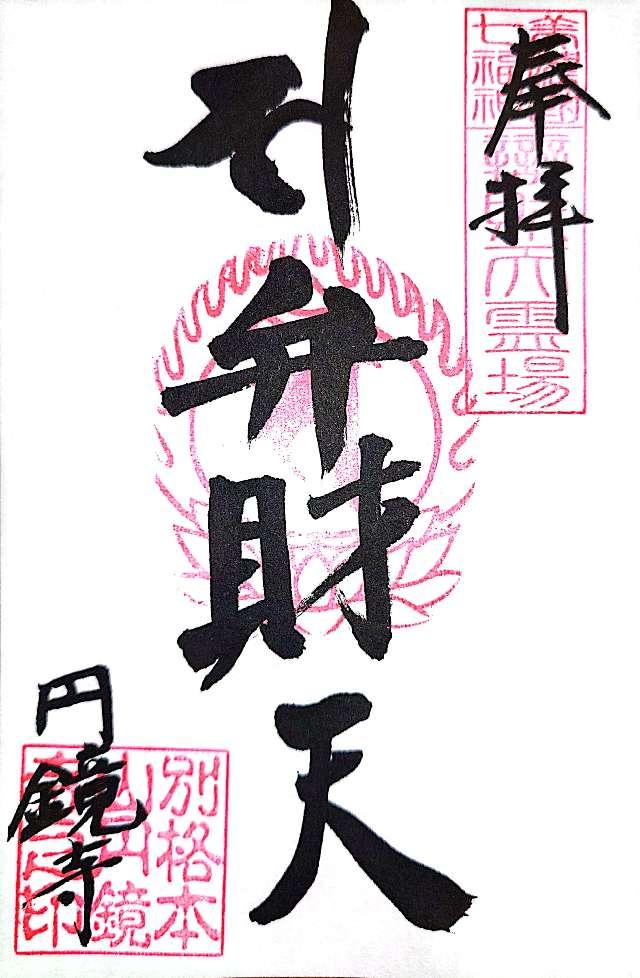 奉拝
七福神
霊場
弁財天
円鏡寺
別格本
山円鏡
印